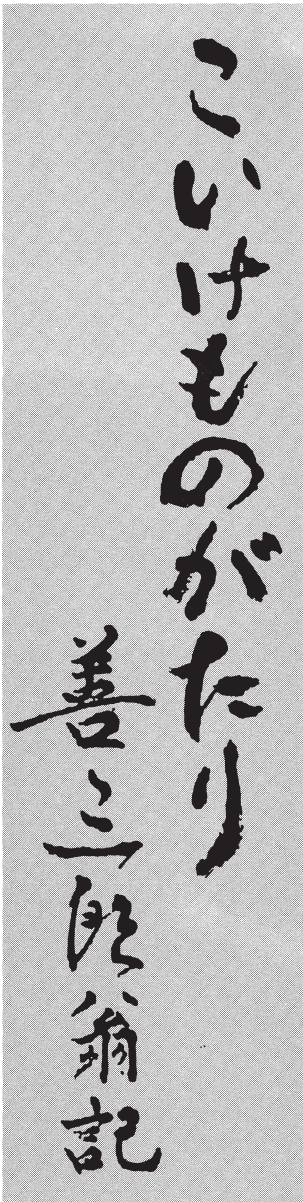 こいけものがたり
善三郎翁記